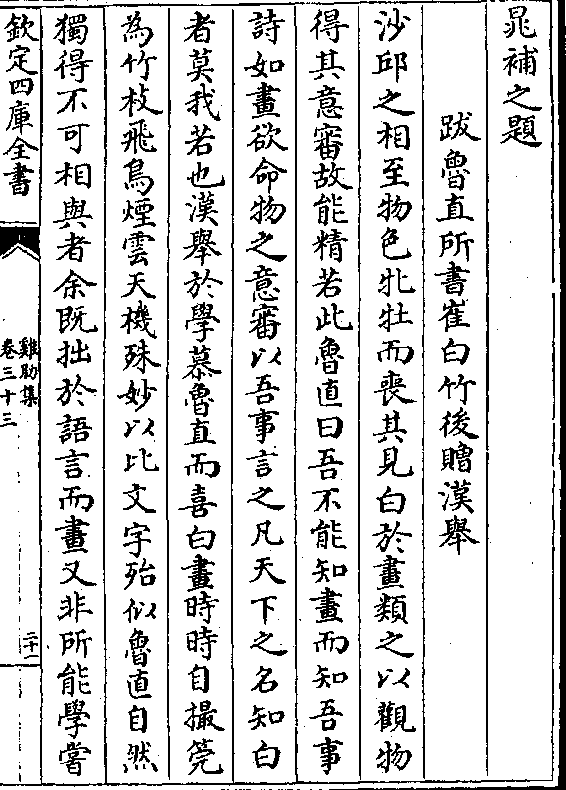 晁補之題
跋魯直所書崔白竹後贈漢舉
沙邱之相至物色牝牡而喪其見白於畫類之以觀物
得其意審故能精若此魯直曰吾不能知畫而知吾事
詩如畫欲命物之意審以吾事言之凡天下之名知白
者莫我若也漢舉於學慕魯直而喜白畫時時自撮筦
為竹枝飛鳥煙雲天機殊妙以比文字殆似魯直自然
獨得不可相與者余既拙於語言而畫又非所能學嘗
欽定四庫全書
雞肋集
卷三十三
二十一